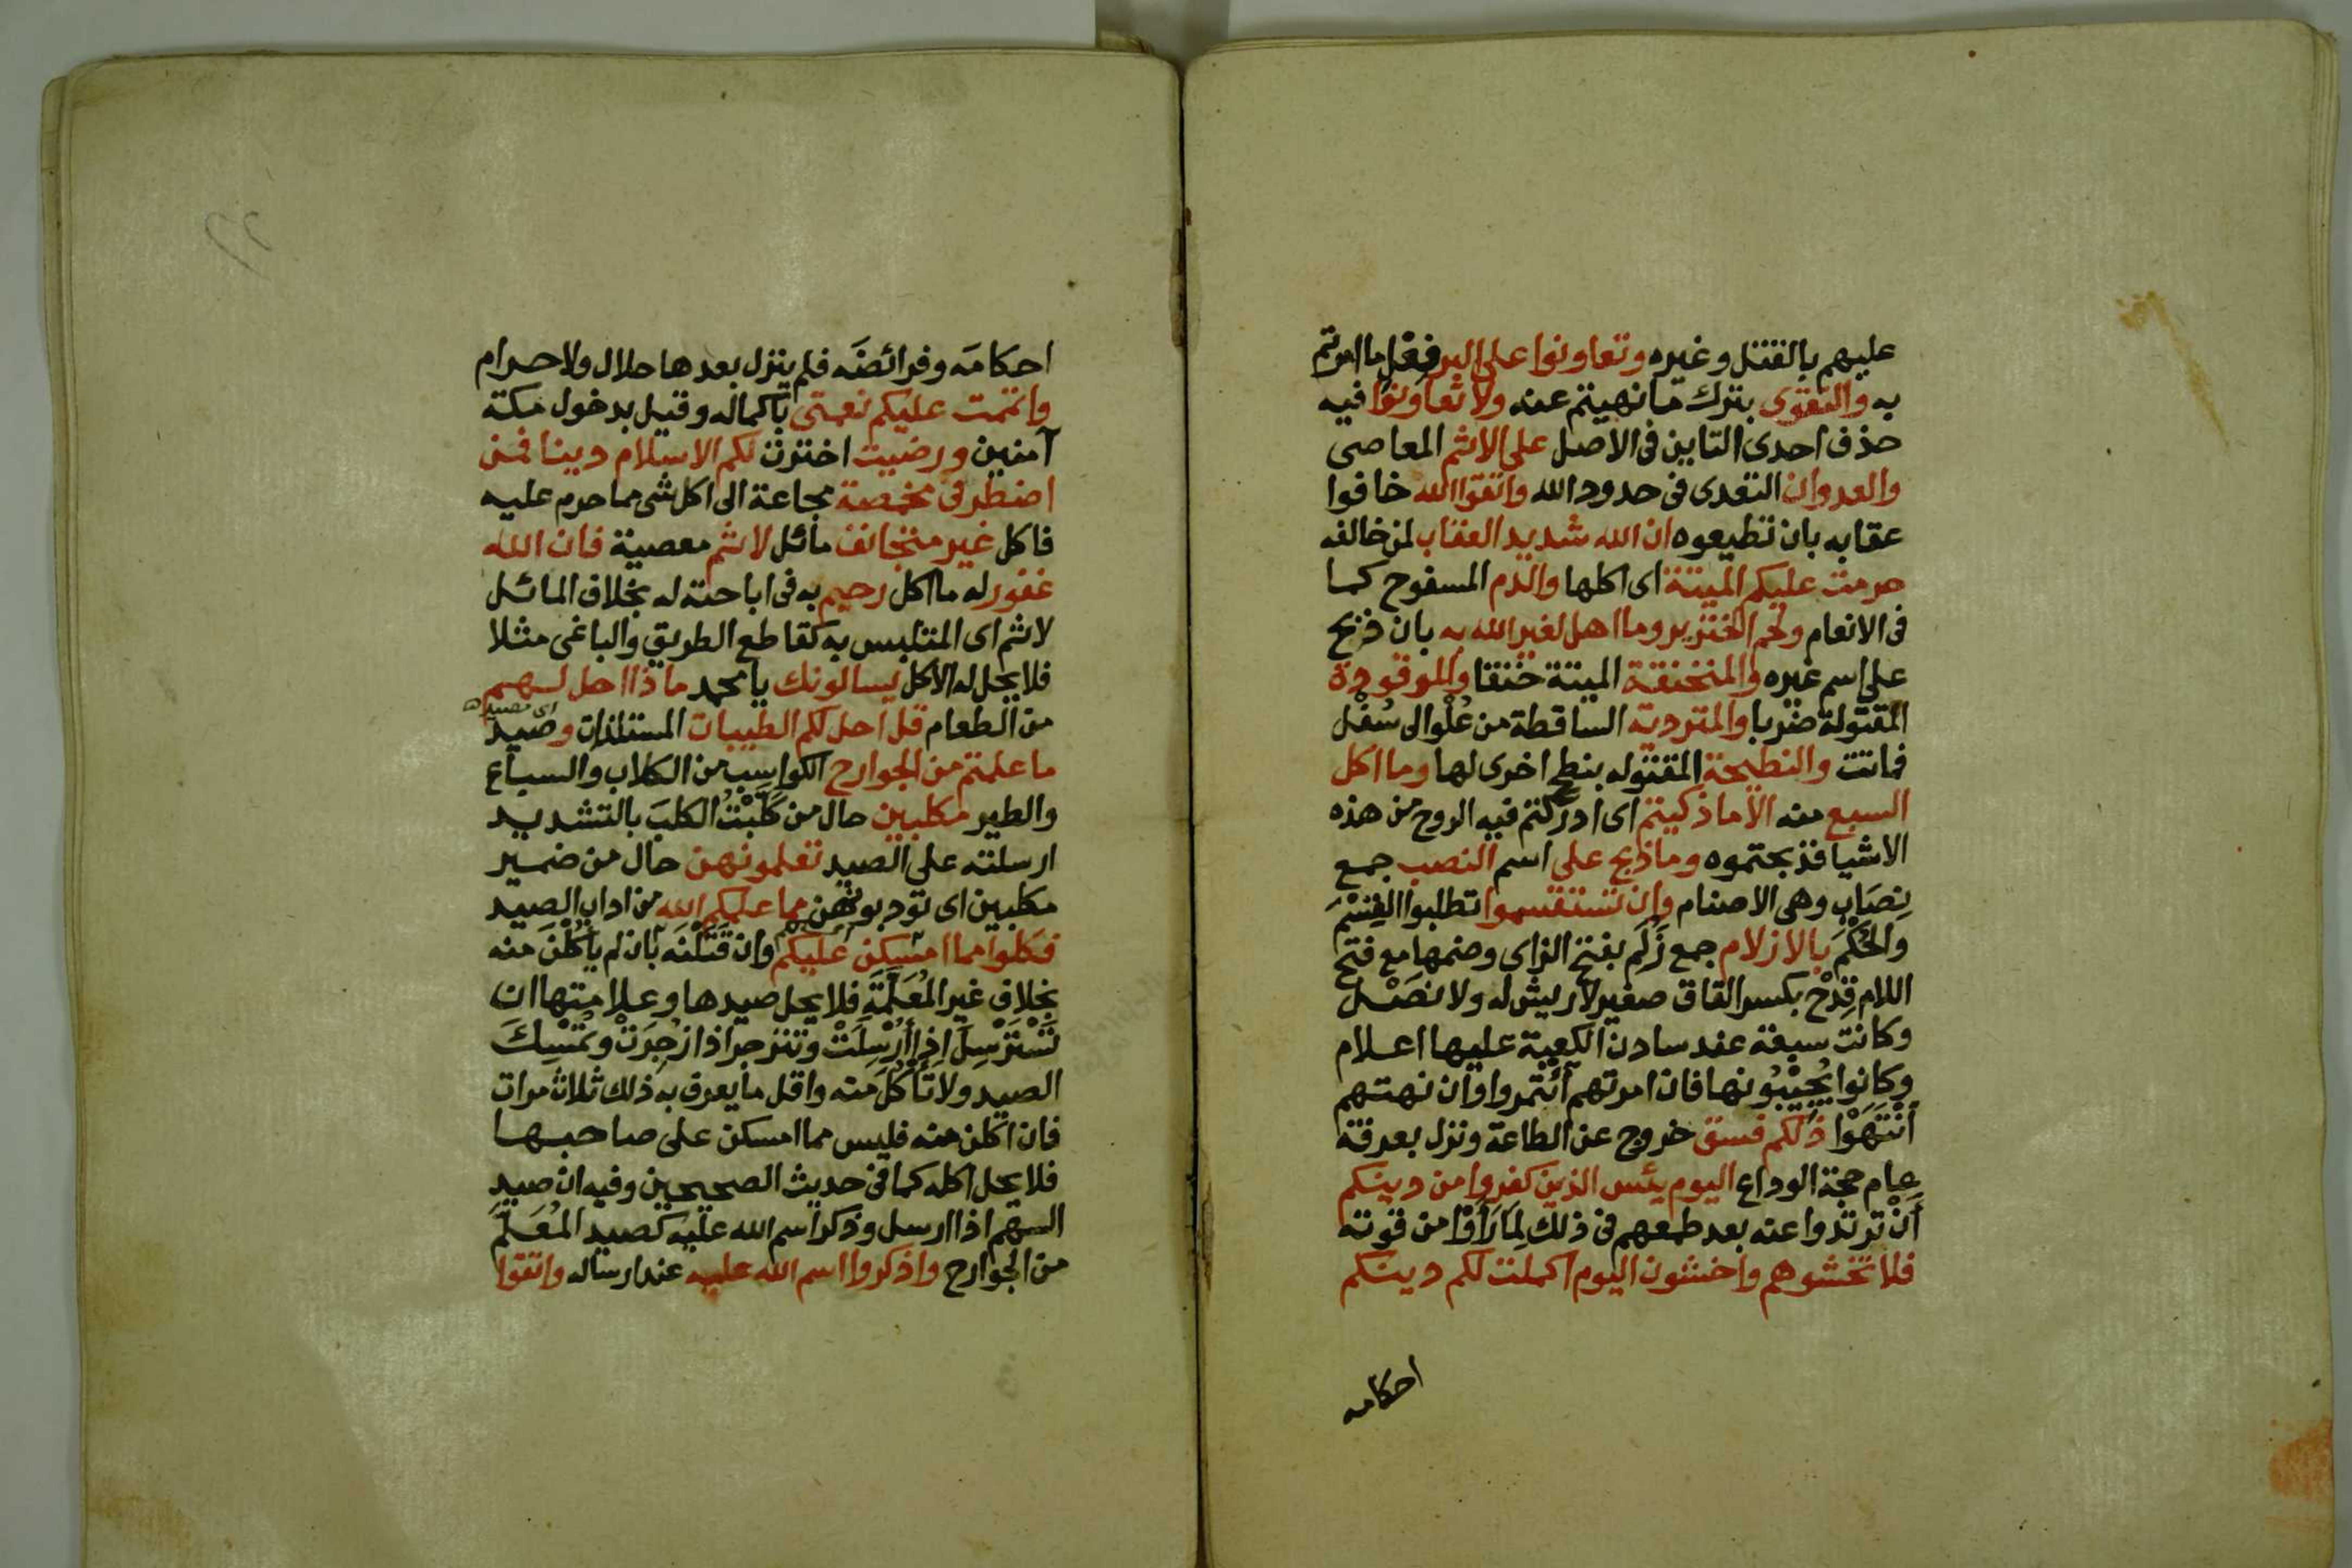 عليهم بالقتل وغيره وتعاونوا على البر فعل ما امرتم
به والتقوى بترك ما نهيتم عنه ولا تعاونوا فيه
حذف احدى التاين فى الاصل على الاثم المعاصى
والعدوان التعدى فى حدود الله واتقوا الله خافوا
عقابه بان تطيعوه ان الله شديد العقاب لمن خالفه
حرمت عليكم الميتة اى اكلها والدم المسفوح كما
فى الانعام ولحم الخنزير وما اهل لغير الله به بان ذبح
على اسم غيره والمنخنقة الميتة خنقا والموقوذة
المقتولة ضربا والمتردية الساقطة من عُلْو الى سُفْل
فماتت والنطيحة المقتوله بنطح اخرى لها وما اكل
السبع منه الا ما ذكيتم اى ادركتم فيه الروح من هذه
الاشيا فذبحتموه وما ذبح على اسم النصب جمع
نِصَاب وهى الاصنام وان تستقسموا تطلبوا القِسْمَ
والحُكْمَ بالازلام جمع زَلَم بفتح الزاى وضمها مع فتح
اللام قِدْحٌ بكسر القاف صغير لا ريش له ولا نَصْل
وكانت سبعة عند سادن الكعبة عليها اعلام
وكانوا يُجِيْبُونها فان امرتهم ائتمروا وان نهتهم
انْتَهَوْا ذلكم فسق خروج عن الطاعة ونزل بعرفة
عام حجة الوداع اليوم يئس الذين كفروا من دينكم
أنْ ترتدوا عنه بعد طمعهم فى ذلك لِمَا رَأَوْا من قوته
فلا تخشوهم واخشون اليوم اكملت لكم دينكم
احكامه
احكامَه وفرائضَه فلم ينزل بعدها حلال ولا حرام
واتممت عليكم نعمتى باكماله وقيل بدخول مكة
آمنين ورضيت اخترت لكم الاسلام دينا فمن
اضطر فى مخمصة مجاعة الى اكل شى مما حرم عليه
فاكل غير متجانف مائل لاثم معصية فان الله
غفور له ما اكل رحيم به فى اباحته له بخلاف المائل
لاثم اى المتلبس به كقاطع الطريق والباغى مثلا
فلا يحل له الاكل يسالونك يا محمد ماذا احل لهم
من الطعام قل احل لكم الطيبات المستلذات وصيد
ما علمتم من الجوارح الكواسب من الكلاب والسباع
والطير مكلبين حال من كَلَّبْتُ الكلبَ بالتشديد
ارسلته على الصيد تعلمونهن حال من ضمير
مكلبين اى تودبونهن مما علمكم الله من اداب الصيد
فكلوا مما امسكن عليكم وان قَتَلْنَه بان لم يأكُلْنَ منه
بخلاف غير المُعَلَّمَةِ فلا يحل صيدها وعلامتها ان
تَسْتَرْسِلَ اذا أُرْسِلَتْ وتنزجر اذا زُجِرَتْ وتُمْسِكَ
الصيد ولا تَأكُلَ منه واقل ما يعرف به ذلك ثلاث مرات
فان اكلن منه فليس مما امسكن على صاحبها
فلا يحل اكله كما فى حديث الصحيحين وفيه ان صيد
السهم اذا ارسل وذكر اسم الله عليه كصيد المُعَلَّم
من الجوارح واذكروا اسم الله عليه عند ارساله واتقوا